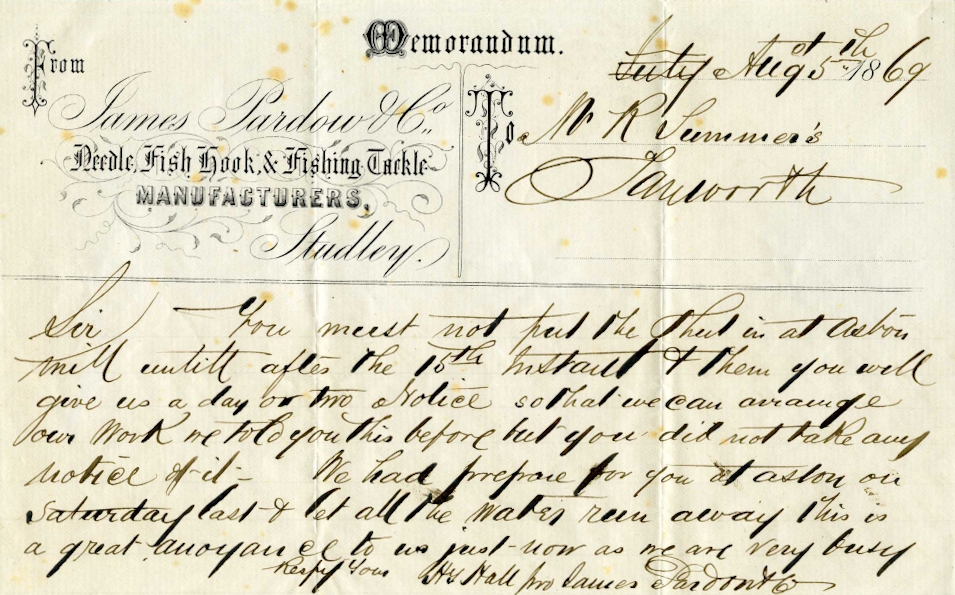 Memorandum.
From
James Pardow & Co.,
Needle, Fish Hook, & Fishing Tackle
MANUFACTURERS,
Studley.
July Aug 5th 1869
To
Mr R Summers
Tanworth
Sir You must not put the Shut in at Aston
Mill untill after the 15th Instant & then you will
give us a day or two Notice so that we can arrange
our Work we told you this before but you did not take any
notice of it - We had prepare for you at aston on
Saturday last & let all the Water run away This is
a great anoyance to us just now as we are very busy
Respy Yours Hy Hall pro James Pardow & Co